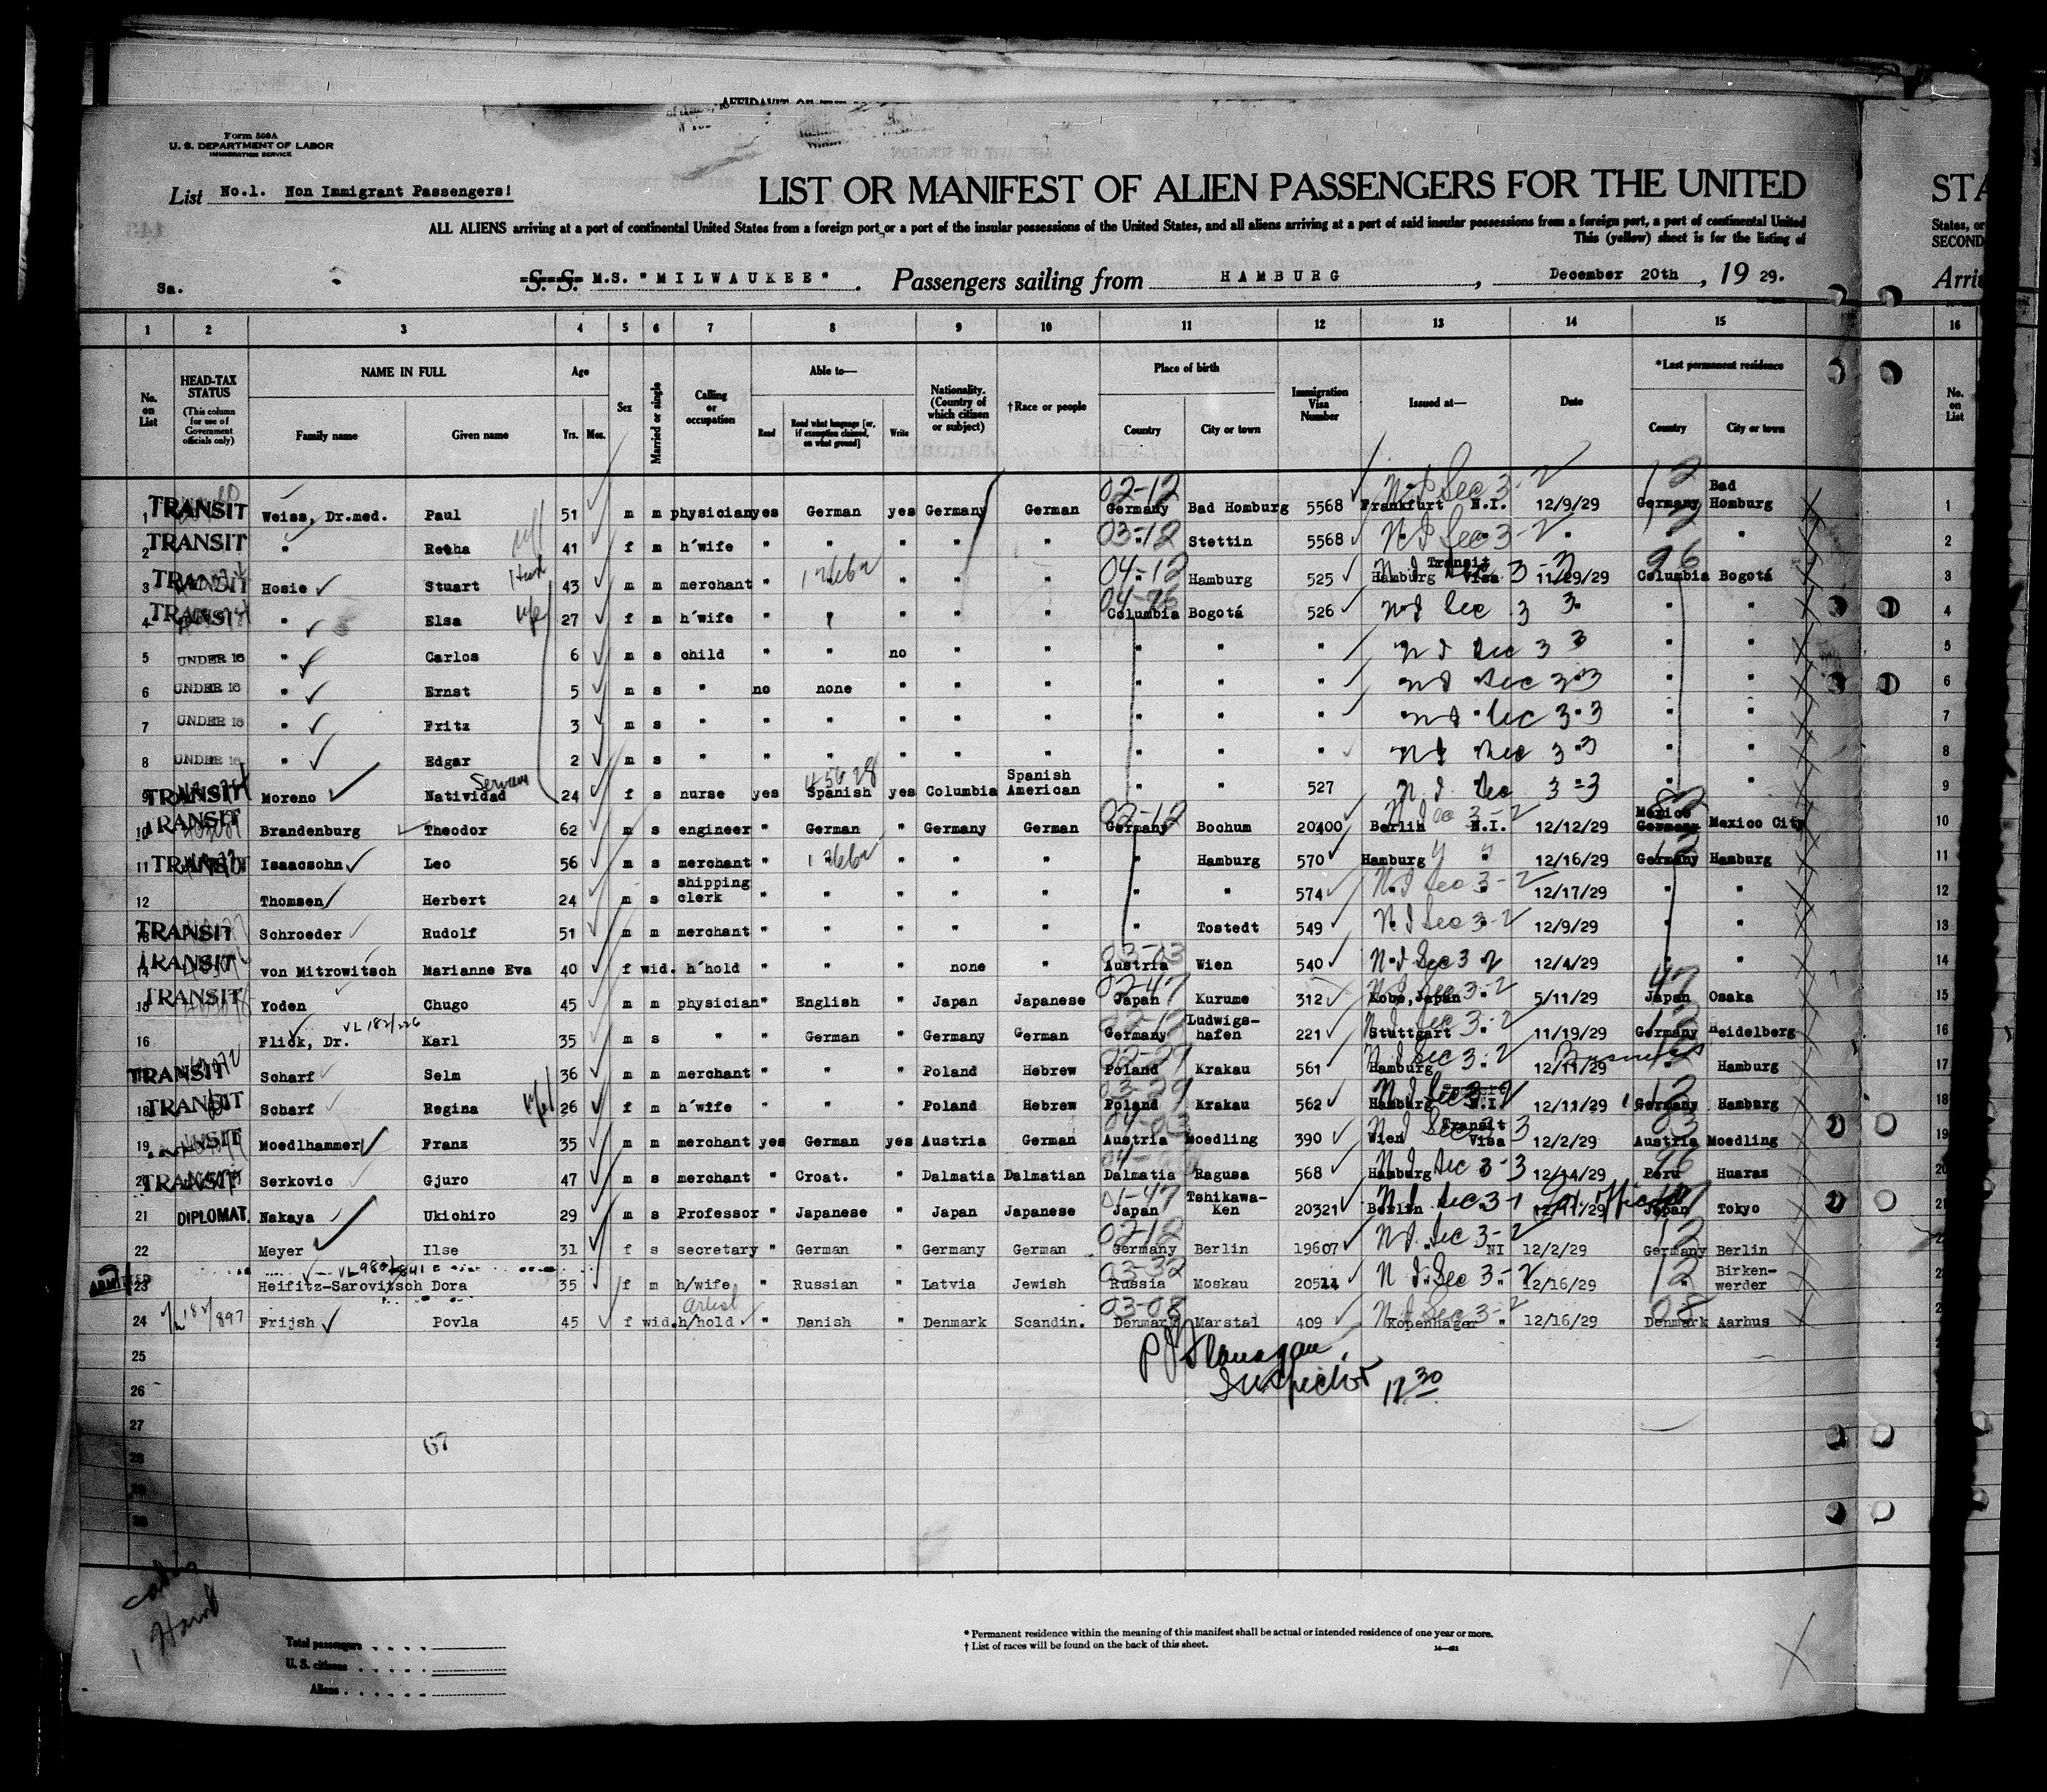 Form 500A
U. S. DEPARTMENT OF LABOR
IMMIGRATION SERVICE
List No.1. Non Immigrant Passengers!
LIST OR MANIFEST OF ALIEN PASSENGERS FOR THE UNITED
STA
ALL ALIENS arriving at a port of continental United States from a foreign port or a port of the insular possessions of the United States, and all aliens arriving at a port of said insular possessions from a foreign port, a port of continental United
States, or
This (yellow) sheet is for the listing of
SECOND
Sa. S. S. M.S. "MILWAUKEE". Passengers sailing from HAMBURG, December 20th, 19 29.
Arri
1 2 3 4 5 6 7 8 9 10 11 12 13 14 15 16
No. on List
HEAD-TAX STATUS (This column for use of Government officials only)
NAME IN FULL Family name Given name
Age Yrs. Mos.
Sex
Married or single
Calling or occupation
Able to— Read Read what language [or, if exemption claimed, on what ground] Write
Nationality. (Country of which citizen or subject)
†Race or people
Place of birth Country City or town
Immigration Visa Number
Issued at—
Date
*Last permanent residence Country City or town
No. on List
1 TRANSIT Weiss, Dr.med. Paul 51 m m physician yes German yes Germany German 02-12 Germany Bad Homburg 5568 Frankfurt N.I. 12/9/29 Germany Bad Homburg 1
2 TRANSIT " Retha 41 f m h'wife " " " " " 03-12 " Stettin 5568 " " " " " 2
3 TRANSIT Hosie Stuart 43 m m merchant " " " " " 04-12 " Hamburg 525 Hamburg Transit Visa 11/29/29 Columbia Bogotá 3
4 TRANSIT " Elsa wife 27 f m h'wife " " " " " Columbia Bogotá 526 N I Sec 3 3 " " 4
5 UNDER 16 " Carlos 6 m s child " " no " " " " " N I Sec 3 3 " " 5
6 UNDER 16 " Ernst 5 m s " no none " " " " " " N I Sec 3-3 " " 6
7 UNDER 16 " Fritz 3 m s " " " " " " " " " N I Sec 3-3 " " 7
8 UNDER 16 " Edgar 2 m s " " " " " " " " " N I Sec 3-3 " " 8
9 TRANSIT Moreno Natividad Servant 24 f s nurse yes Spanish yes Columbia Spanish American " " 527 N. I. Sec 3-3 " " 9
10 TRANSIT Brandenburg Theodor 62 m s engineer " German " Germany German 02-12 Germany Bochum 20400 Berlin N.I. 12/12/29 Mexico Germany Mexico City 10
11 TRANSIT Isaacsohn Leo 56 m s merchant " " " " " " Hamburg 570 Hamburg " 12/16/29 Germany Hamburg 11
12 Thomsen Herbert 24 m s shipping clerk " " " " " " " 574 N I Sec 3-2 12/17/29 " " 12
13 TRANSIT Schroeder Rudolf 51 m m merchant " " " " " " Tostedt 549 N. I Sec 3-2 12/9/29 " " 13
14 TRANSIT von Mitrowitsch Marianne Eva 40 f wid. h'hold " " " none " 03-03 Austria Wien 540 N. I Sec 3 2 12/4/29 " " 14
15 TRANSIT Yoden Chugo 45 m m physician " English " Japan Japanese 02-47 Japan Kurume 312 Kobe, Japan " 5/11/29 47 Japan Osaka 15
16 Flick, Dr. VL 182/226 Karl 35 m s " " German " Germany German 02-12 Germany Ludwigs-hafen 221 Stuttgart " 11/19/29 Germany Heidelberg 16
17 TRANSIT Scharf Selm 36 m m merchant " " " Poland Hebrew 02-29 Poland Krakau 561 Hamburg " 12/11/29 Business " Hamburg 17
18 TRANSIT Scharf Regina wife 26 f m h'wife " " " Poland Hebrew 03-29 Poland Krakau 562 Hamburg N.I. 12/11/29 12 Germany Hamburg 18
19 TRANSIT Moedlhammer Franz 35 m m merchant yes German yes Austria German 04-03 Austria Moedling 390 Wien Transit Visa 12/2/29 03 Austria Moedling 19
20 TRANSIT Serkovic Gjuro 47 m s merchant " Croat. " Dalmatia Dalmatian Dalmatia Ragusa 568 Hamburg " 12/14/29 Peru Huaras 20
21 DIPLOMAT. Nakaya Ukichiro 29 m s Professor " Japanese " Japan Japanese 01-47 Japan Tshikawa-Ken 20321 Berlin N I Sec 3-1 12/11/29 47 Japan Tokyo 21
22 Meyer Ilse 31 f s secretary " German " Germany German 02-12 Germany Berlin 19607 N I. Sec 3-2 " NI 12/2/29 12 Germany Berlin
ADMITTED 23 Heifitz-Sarovitsch Dora 35 f m h/wife " Russian " Latvia Jewish 03-32 Russia Moskau 20514 N I Sec 3-2 12/16/29 12 " Birken-werder
24 Frijsh Povla 45 f wid. h/hold artist " Danish " Denmark Scandin. 03-08 Denmark Marstal 409 Kopenhagen " 12/16/29 08 Denmark Aarhus
25 P J Flanagan
26 Inspector 12 30
27
28 67
29
30
Total passengers . . . .
U. S. citizens . . . . .
Aliens . . . . . .
* Permanent residence within the meaning of this manifest shall be actual or intended residence of one year or more.
† List of races will be found on the back of this sheet.